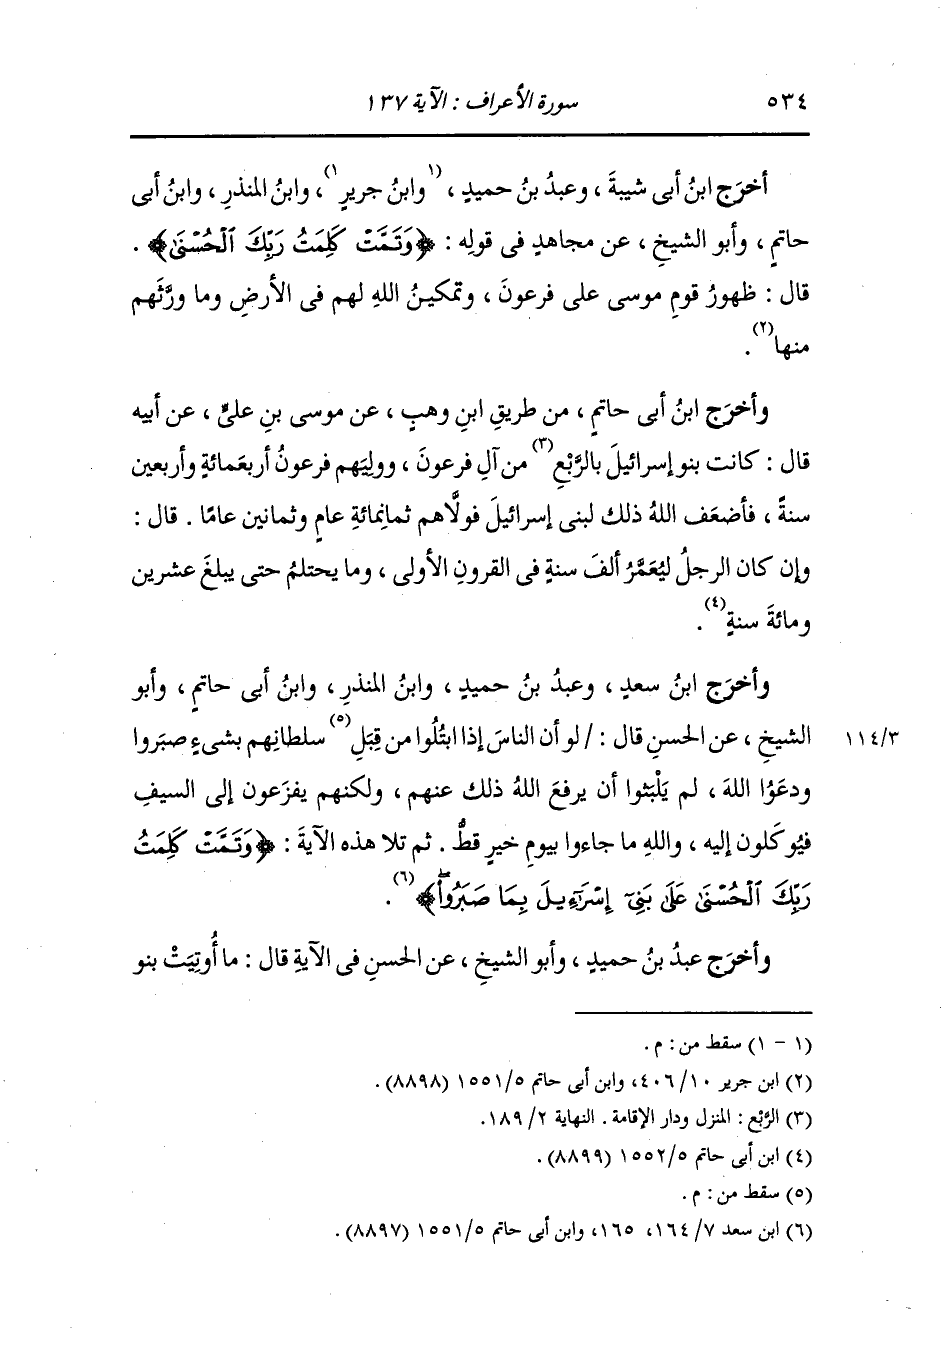 ٥٣٤ سورة الأعراف : الآية ١٣٧
أخرَج ابنُ أبى شيبةَ ، وعبدُ بنُ حميدٍ ، (١وابنُ جريرٍ١) ، وابنُ المنذرِ ، وابنُ أبى
حاتمٍ ، وأبو الشيخِ ، عن مجاهدٍ فى قولِه : ﴿وَتَمَّتْ كَلِمَتُ رَبِّكَ ٱلْحُسْنَىٰ﴾ .
قال : ظهورُ قومِ موسى على فرعونَ ، وتمكينُ اللهِ لهم فى الأرضِ وما ورَّثَهم
منها(٢) .
وأخرَج ابنُ أبى حاتمٍ ، من طريقِ ابنِ وهبٍ ، عن موسى بنِ علىٍّ ، عن أبيه
قال : كانت بنو إسرائيلَ بالرَّبْعِ(٣) من آلِ فرعونَ ، ووليَهم فرعونُ أربعَمائةٍ وأربعين
سنةً ، فأضعَف اللهُ ذلك لبنى إسرائيلَ فولَّاهم ثمانمائةِ عامٍ وثمانين عامًا . قال :
وإن كان الرجلُ ليُعَمَّرُ ألفَ سنةٍ فى القرونِ الأولى ، وما يحتلمُ حتى يبلغَ عشرين
ومائةَ سنةٍ(٤) .
وأخرَج ابنُ سعدٍ ، وعبدُ بنُ حميدٍ ، وابنُ المنذرِ ، وابنُ أبى حاتمٍ ، وأبو
الشيخِ ، عن الحسنِ قال : / لو أن الناسَ إذا ابتُلُوا من قِبَلِ(٥) سلطانِهم بشىءٍ صبَروا ١١٤/٣
ودعَوُا اللهَ ، لم يَلْبَثوا أن يرفعَ اللهُ ذلك عنهم ، ولكنهم يفزَعون إلى السيفِ
فيُوكَلون إليه ، واللهِ ما جاءوا بيومِ خيرٍ قطُّ . ثم تلا هذه الآيةَ : ﴿وَتَمَّتْ كَلِمَتُ
رَبِّكَ ٱلْحُسْنَىٰ عَلَىٰ بَنِىٓ إِسْرَٰٓءِيلَ بِمَا صَبَرُوا۟ۖ﴾(٦) .
وأخرَج عبدُ بنُ حميدٍ ، وأبو الشيخِ ، عن الحسنِ فى الآيةِ قال : ما أُوتِيَتْ بنو
(١ - ١) سقط من : م .
(٢) ابن جرير ١٠/ ٤٠٦، وابن أبى حاتم ١٥٥١/٥ (٨٨٩٨) .
(٣) الرَّبْع : المنزل ودار الإقامة . النهاية ٢/ ١٨٩.
(٤) ابن أبى حاتم ١٥٥٢/٥ (٨٨٩٩) .
(٥) سقط من : م .
(٦) ابن سعد ٧/ ١٦٤، ١٦٥، وابن أبى حاتم ١٥٥١/٥ (٨٨٩٧) .